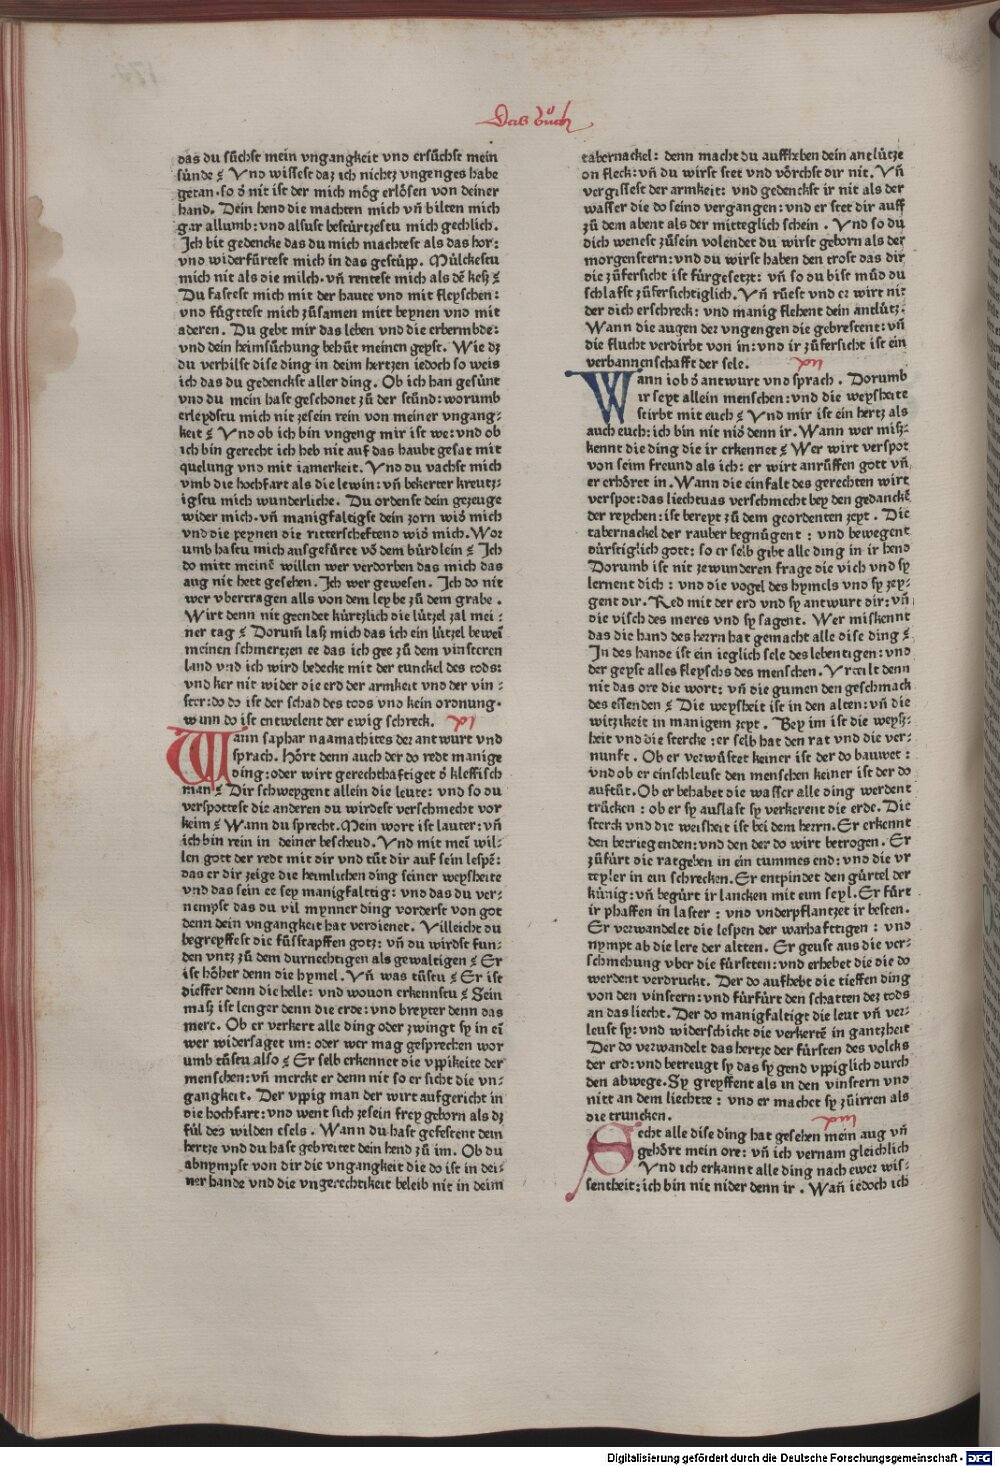 Das bůch
das du sůchst mein vngangkeit vnd ersůchst mein
súnde ⸮ Vnd wissest daz ich nichtz vngenges habe
getan. so ð nit ist der mich mög erlösen von deiner
hand. Dein hend die machten mich vñ bilten mich
gar allumb: vnd alsust bestúrtzestu mich gechlich.
Ich bit gedencke das du mich machtest als das hor:
vnd widerfúrtest mich in das gestúpp. Múlckestu
mich nit als die milch. vñ rentest mich als dē kesz ⸮
Du fastest mich mit der haute vnd mit fleyschen:
vnd fúgttest mich zůsamen mitt beynen vnd mit
aderen. Du gebt mir das leben vnd die erbermbde:
vnd dein heimsůchung behůt meinen geyst. Wie dz
du verhilst dise ding in deim hertzen iedoch so weis
ich das du gedenckst aller ding. Ob ich han gesúnt
vnd du mein hast geschonet zů der stúnd: worumb
erleydstu mich nit zesein rein von meiner vngang⸗
keit ⸮ Vnd ob ich bin vngeng mir ist we: vnd ob
ich bin gerecht ich heb nit auf das haubt gesat mit
quelung vnd mit iamerkeit. Vnd du vachst mich
vmb die hochfart als die lewin: vñ bekerter kreutz⸗
igstu mich wunderliche. Du ordenst dein gezeuge
wider mich. vñ manigfaltigst dein zorn wið mich
vnd die peynen die ritterscheftend wið mich. Wor
umb hastu mich ausgefúret võ dem búrdlein ⸮ Ich
do mitt meinē willen wer verdorben das mich das
aug nit hett gesehen. Ich wer gewesen. Ich do nit
wer vbertragen alls von dem leybe zů dem grabe.
Wirt denn nit geendet kúrtzlich die lútzel zal mei⸗
ner tag ⸮ Dorum̃ lasz mich das ich ein lútzel beweī
meinen schmertzen ee das ich gee zů dem vinsteren
land vnd ich wird bedeckt mit der tunckel des tods:
vnd ker nit wider die erd der armkeit vnd der vin⸗
ster: do do ist der schad des tods vnd kein ordnung.
wann do ist entwelent der ewig schreck. xi
Wann saphar naamathites der antwurt vnd
sprach. Hört denn auch der do redt manige
ding: oder wirt gerechthaftiget ð kleffisch
man ⸮ Dir schweygent allein die leute: vnd so du
verspottest die anderen du wirdest verschmecht vor
keim ⸮ Wann du sprecht. Mein wort ist lauter: vñ
ich bin rein in deiner bescheud. Vnd mit meī wil⸗
len gott der redt mit dir vnd tůt dir auf sein lespē:
das er dir zeige die heimlichen ding seiner weysheite
vnd das sein ee sey manigfalttig: vnd das du ver⸗
nempst das du vil mynner ding vorderst von got
denn dein vngangkeit hat verdienet. Villeicht du
begreyffest die fůsstapffen gotz: vñ du wirdst fun⸗
den vntz zů dem durnechtigen als gewaltigen ⸮ Er
ist höher denn die hymel. Vñ was tůstu ⸮ Er ist
dieffer denn die helle: vnd wouon erkennstu ⸮ Sein
masz ist lenger denn die erde: vnd breyter denn das
mere. Ob er verkert alle ding oder zwingt sy in eī
wer widersaget im: oder wer mag gesprechen wor
umb tůstu also ⸮ Er selb erkennet die vppikeite der
menschen: vñ merckt er denn nit so er sicht die vn⸗
gangkeit. Der vppig man der wirt aufgericht in
die hochfart: vnd went sich zesein frey geborn als dz
fúl des wilden esels. Wann du hast gefestent dein
hertze vnd du hast gebreitet dein hend zů im. Ob du
abnympst von dir die vngangkeit die do ist in dei⸗
ner hande vnd die vngerechtikeit beleib nit in deim
tabernackel: denn macht du auffheben dein antlútze
on fleck: vñ du wirst stet vnd vörchst dir nit. Vñ
vergissest der armkeit: vnd gedenckst ir nit als der
wasser die do seind vergangen: vnd er stet dir auff
zů dem abent als der mitteglich schein. Vnd so du
dich wenest zůsein volendet du wirst geborn als der
morgenstern: vnd du wirst haben den trost das dir
die zůfersicht ist fúrgesetzt: vñ so du bist můd du
schlafst zůfersichtiglich. Vñ růest vnd er wirt nit
der dich erschreck: vnd manig flehent dein antlútz.
Wann die augen der vngengen die gebrestent: vñ
die flucht verdirbt von in: vnd ir zůfersicht ist ein
verbannenschafft der sele. xii
Wann iob ð antwurt vnd sprach. Dorumb
ir seyt allein menschen: vnd die weysheite
stirbt mit euch ⸮ Vnd mir ist ein hertz als
auch euch: ich bin nit nið denn ir. Wann wer misz⸗
kennt die ding die ir erkennet ⸮ Wer wirt verspot
von seim freund als ich: er wirt anrůffen gott vñ
er erhöret in. Wann die einfalt des gerechten wirt
verspot: das liechtuas verschmecht bey den gedanckē
der reychen: ist bereyt zů dem geordenten zeyt. Die
tabernackel der rauber begnůgent: vnd bewegent
dúrstiglich gott: so er selb gibt alle ding in ir hend
Dorumb ist nit zewunderen frage die vich vnd sy
lernent dich: vnd die vogel des hymels vnd sy zey⸗
gent dir. Red mit der erd vnd sy antwurt dir: vñ
die visch des meres vnd sy sagent. Wer miskennt
das die hand des herrn hat gemacht alle dise ding ⸮
In des hande ist ein ieglich sele des lebentigen: vnd
der geyst alles fleyschs des menschen. Vrteilt denn
nit das ore die wort: vñ die gumen den geschmack
des essenden ⸮ Die weysheit ist in den alten: vñ die
witzikeit in manigem zeyt. Bey im ist die weysz⸗
heit vnd die stercke: er selb hat den rat vnd die ver⸗
nunft. Ob er verwůstet keiner ist der do bauwet:
vnd ob er einschleust den menschen keiner ist der do
auftůt. Ob er behabet die wasser alle ding werdent
trúcken: ob er sy auslast sy verkerent die erde. Die
sterck vnd die weisheit ist bei dem herrn. Er erkennt
den betriegenden: vnd den der do wirt betrogen. Er
zůfúrt die ratgeben in ein tummes end: vnd die vr
teyler in ein schrecken. Er entpindet den gúrtel der
kúnig: vñ begúrt ir lancken mit eim seyl. Er fúrt
ir phaffen in laster: vnd vnderpflantzet ir besten.
Er verwandelet die lespen der warhafttigen: vnd
nympt ab die lere der altten. Er geust aus die ver⸗
schmehung vber die fúrstten: vnd erhebet die die do
werdent verdruckt. Der do aufhebt die tieffen ding
von den vinstern: vnd fúrfúrt den schatten dez tods
an das liecht. Der do manigfaltigt die leut vñ ver⸗
leust sy: vnd widerschickt die verkertē in gantzheit
Der do verwandelt das hertze der fúrsten des volcks
der erd: vnd betreugt sy das sy gend vppiglich durch
den abwege. Sy greyffent als in den vinstern vnd
nitt an dem liechtte: vnd er machet sy zůirren als
die truncken. xiii
Secht alle dise ding hat gesehen mein aug vñ
gehört mein ore: vñ ich vernam gleichlich
Vnd ich erkannt alle ding nach ewer wis⸗
sentheit: ich bin nit nider denn ir. Wañ iedoch ich
Digitalisierung gefördert durch die Deutsche Forschungsgemeinschaft - DFG